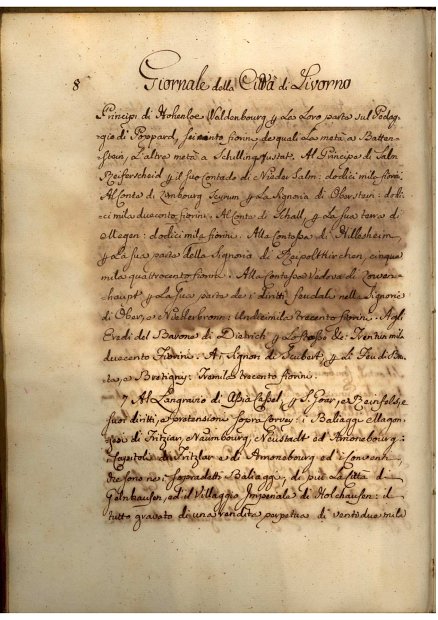 8 Giornale della Città di Livorno
Principi di Hohenloe Valdenbourg p la Loro parte sul Pedag-
gio di Poppard, seicento fiorini, de quali la metà a Batten-
stein, L'altra metà a Schillingsfustat. Al Principe di Salm
Reiferscheid p il suo Contado di Nieder Salm: dodici mila fiorini
Al Conte di Limbourg Styrum p La Signoria di Oberstein: dodi-
ci mila duecento fiorini. Al Conte di Schall, p La sua terra di
Mégen: dodici mila fiorini. Alla Contessa di Hillesheim
p La sua parte della Signoria di Reipoltkirchen, cinque
mila quattrocento fiorini. Alla Contessa Vedova di Loewen-
haupt p La sua parte de i diritti feudali nella Signorie
di Ober, e Niederbronn: Undicimila trecento fiorini. Agli
Eredi del Barone di Dietrich p Lo stesso de: Trentun mila
duecento Fiorini. Ai Signori di Seubert, p Li Feudi di
e Bretigny: Tremila trecento fiorini.
7 Al Langravio di Assia Cassel, p S. Goar, e Reinfels, e
suoi diritti, e pretensioni sopra Corvey: i Baliaggi Magon-
zesi di Fritzlar, Naumbourg, Neustadt ed Amonebourg:
i Capitoli di Fritzlar e di Amonebourg ed i Conventi,
che sono ne i sopradetti Baliaggi, di più La Città di
Gelnhausen, ed il Villaggio Imperiale di Holchausen: il
tutto gravato di una rendita perpetua di ventidue mila